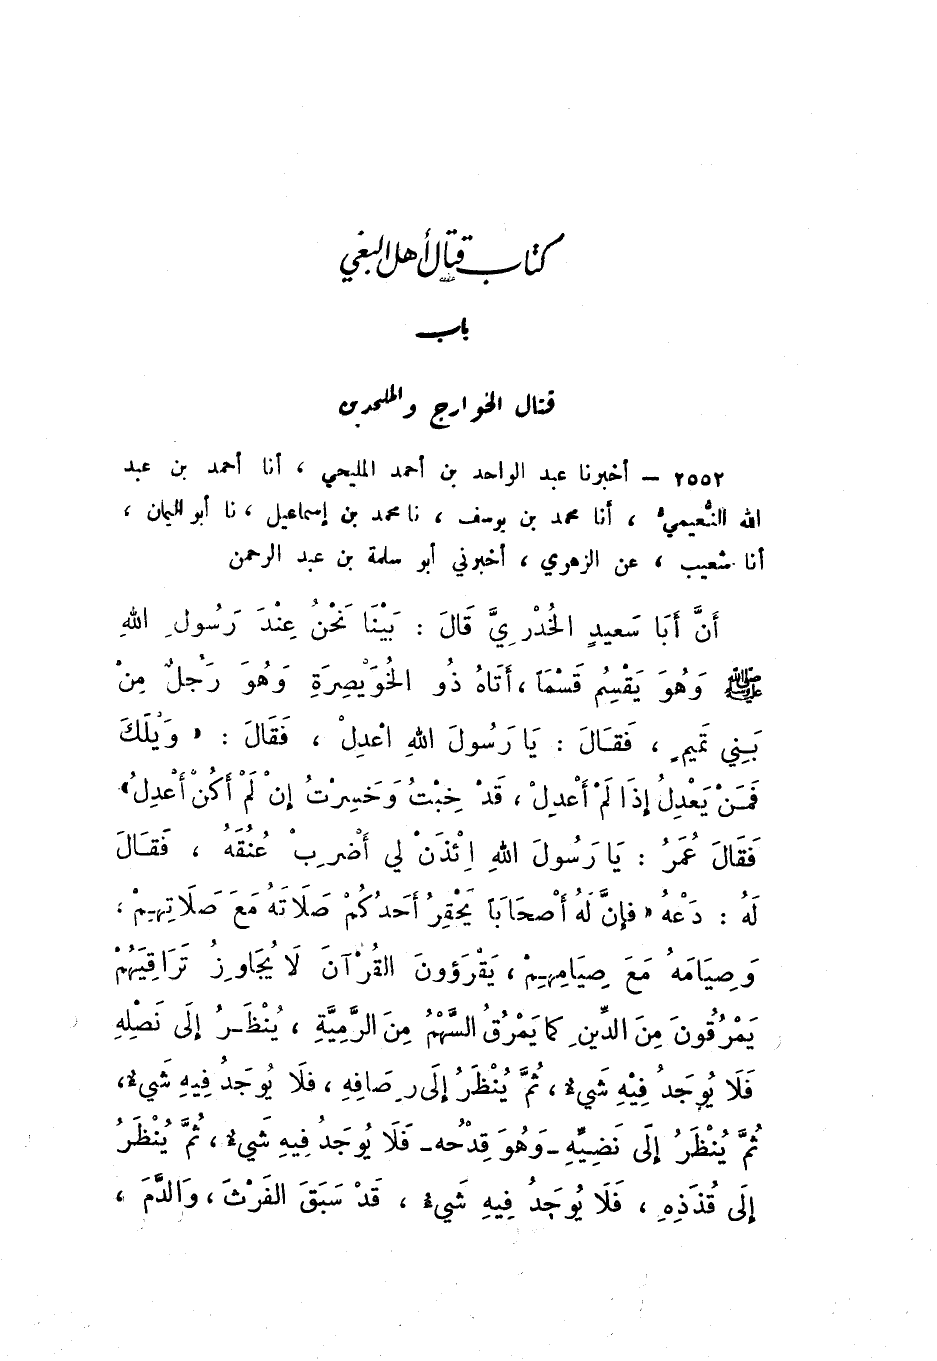 كتاب قتال أهل البغي
باب
قتال الخوارج والملحدين
٢٥٥٢ – أخبرنا عبد الواحد بن أحمد المليحي ، أنا أحمد بن عبد
الله النُّعيمي ، أنا محمد بن يوسف ، نا محمد بن إسماعيل ، نا أبو اليمان ،
أنا شعيب ، عن الزهري ، أخبرني أبو سلمة بن عبد الرحمن
أَنَّ أَبَا سَعيدٍ الخُدْرِيَّ قَالَ : بَيْنَا نَحْنُ عِنْدَ رَسُولِ اللهِ
ﷺ وَهُوَ يَقْسِمُ قَسْمَاً ، أَتَاهُ ذُو الخُوَيْصِرَةِ وَهُوَ رَجُلٌ مِنْ
بَنِي تَمِيمٍ ، فَقَالَ : يَا رَسُولَ اللهِ اعْدِلْ ، فَقَالَ : « وَيْلَكَ
فَمَنْ يَعْدِلُ إِذَا لَمْ أَعْدِلْ ، قَدْ خِبْتُ وَخَسِرْتُ إِنْ لَمْ أَكُنْ أَعْدِلُ »
فَقَالَ عُمَرُ : يَا رَسُولَ اللهِ ائْذَنْ لي أَضْرِبْ عُنُقَهُ ، فَقَالَ
لَهُ : دَعْهُ « فإِنَّ لَهُ أَصْحَابَاً يَحْقِرُ أَحَدُكُمْ صَلَاتَهُ مَعَ صَلَاتِهِمْ ،
وَصِيَامَهُ مَعَ صِيَامِهِمْ ، يَقْرَؤونَ القُرْآنَ لَا يُجَاوِزُ تَرَاقِيَهُمْ
يَمْرُقُونَ مِنَ الدِّينِ كَمَا يَمْرُقُ السَّهْمُ مِنَ الرَّمِيَّةِ ، يُنْظَرُ إِلَى نَصْلِهِ
فَلَا يُوجَدُ فِيْهِ شَيءٌ ، ثُمَّ يُنْظَرُ إِلَى رِصَافِهِ ، فلَا يُوجَدُ فِيهِ شَيءٌ ،
ثُمَّ يُنْظَرُ إِلَى نَضِيِّهِ - وَهُوَ قِدْحُه - فَلَا يُوجَدُ فِيهِ شَيءٌ ، ثُمَّ يُنْظَرُ
إِلَى قُذَذِهِ ، فَلَا يُوجَدُ فِيهِ شَيءٌ ، قَدْ سَبَقَ الفَرْثَ ، وَالدَّمَ ،